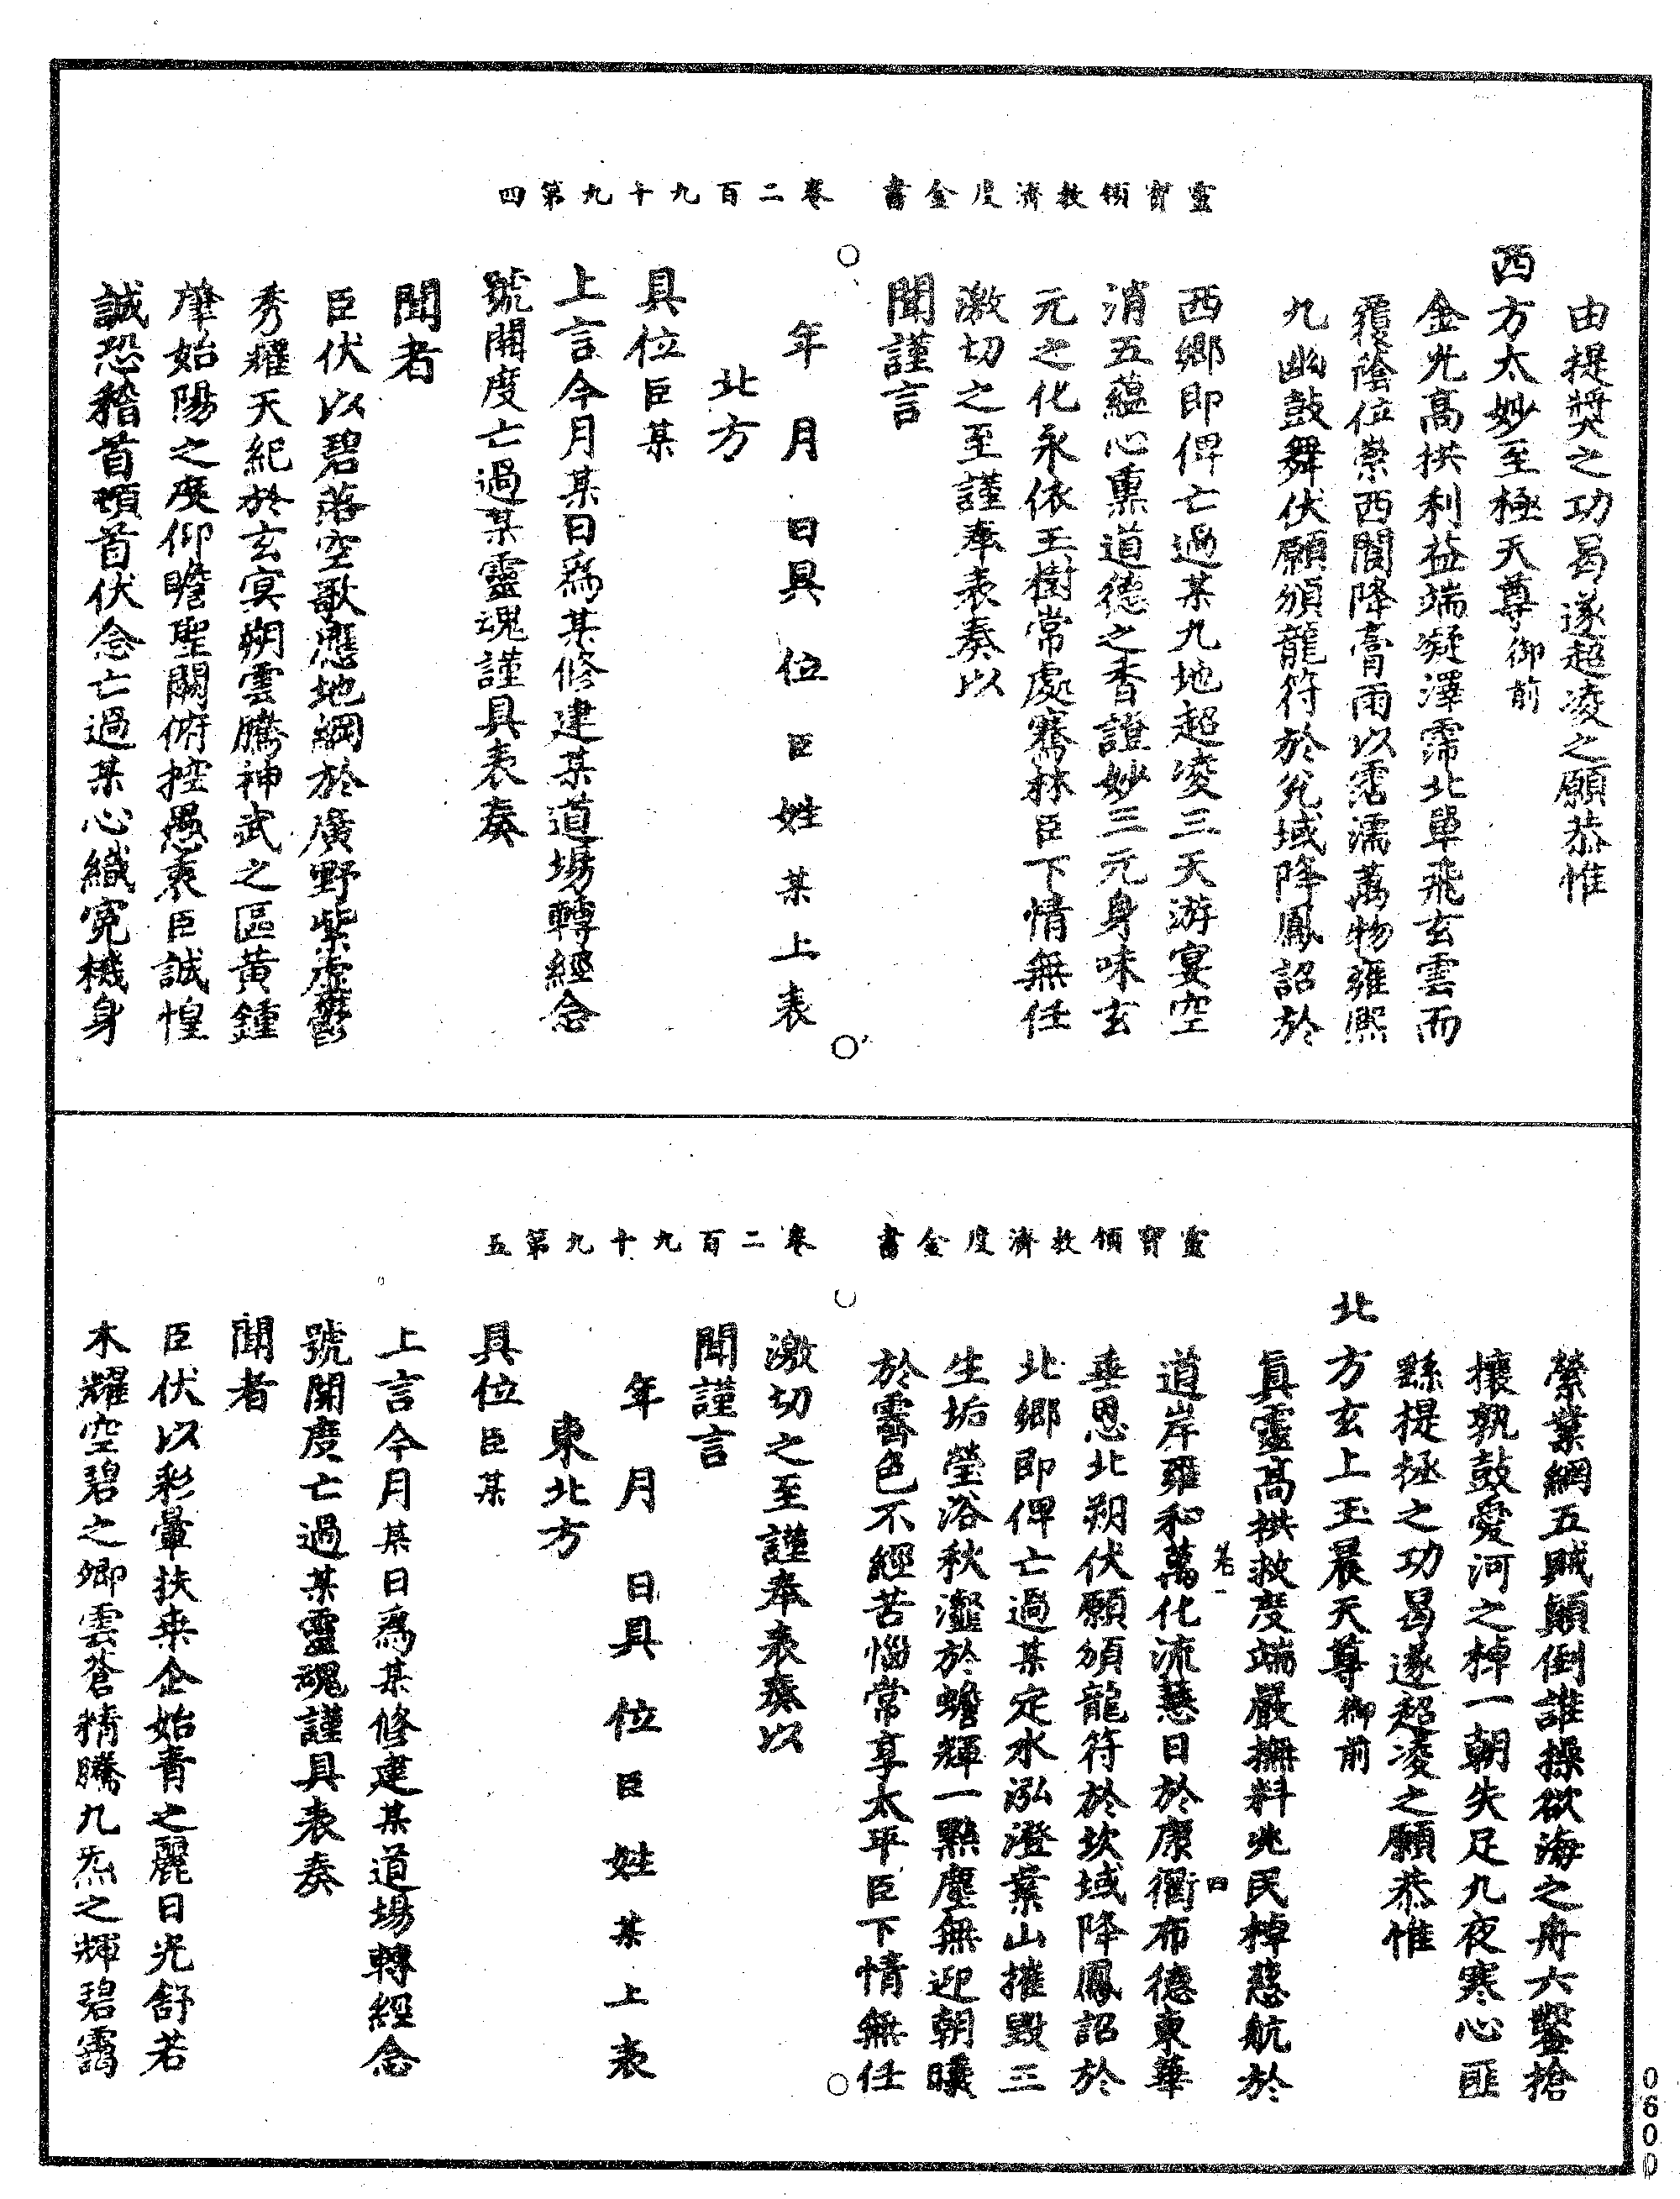 靈寶領教濟度金書　卷二百九十九第四
由提奬之功曷遂超凌之願恭惟
西方太妙至極天尊御前
金光高拱利益端凝澤霈北單飛玄雲而
覆蔭位崇西閣降膏雨以霑濡萬物雍熙
九幽鼓舞伏願頒龍符於兌域降鳳詔於
西鄉即俾亡過某九地超凌三天游宴空
消五蘊心熏道德之香證妙三元身味玄
元之化永依玉樹常處騫林臣下情無任
激切之至謹奉表奏以
聞謹言
年　月　日具　位　臣　姓　某　上　表
北方
具位臣某
上言今月某日爲某修建某道場轉經念
號開度亡過某靈魂謹具表奏
聞者
臣伏以碧落空歌應地綱於廣野紫虛鬱
秀耀天紀於玄冥朔雲騰神武之區黃鍾
肇始陽之度仰瞻聖闕俯控愚衷臣誠惶
誠恐稽首頓首伏念亡過某心織寃機身
靈寶領教濟度金書　卷二百九十九第五
縈業網五賊顛倒誰操欲海之舟六鑿搶
攘孰鼓愛河之棹一朝失足九夜寒心匪
繇提拯之功曷遂超凌之願恭惟
北方玄上玉晨天尊御前
眞靈高拱救度端嚴撫料兆民棹慈航於
道岸雍和萬化流慧日於康衢布德東華
垂恩北朔伏願頒龍符於坎域降鳳詔於
北鄉即俾亡過某定水泓澄業山摧毀三
生垢瑩浴秋灝於蟾輝一點塵無迎朝曦
於霽色不經苦惱常享太平臣下情無任
激切之至謹奉表奏以
聞謹言
年　月　日具　位　臣　姓　某　上　表
東北方
具位臣某
上言今月某日爲某修建某道場轉經念
號開度亡過某靈魂謹具表奏
聞者
臣伏以彩暈扶桒企始青之麗日光舒若
木耀空碧之卿雲蒼精騰九炁之輝碧靄
0600